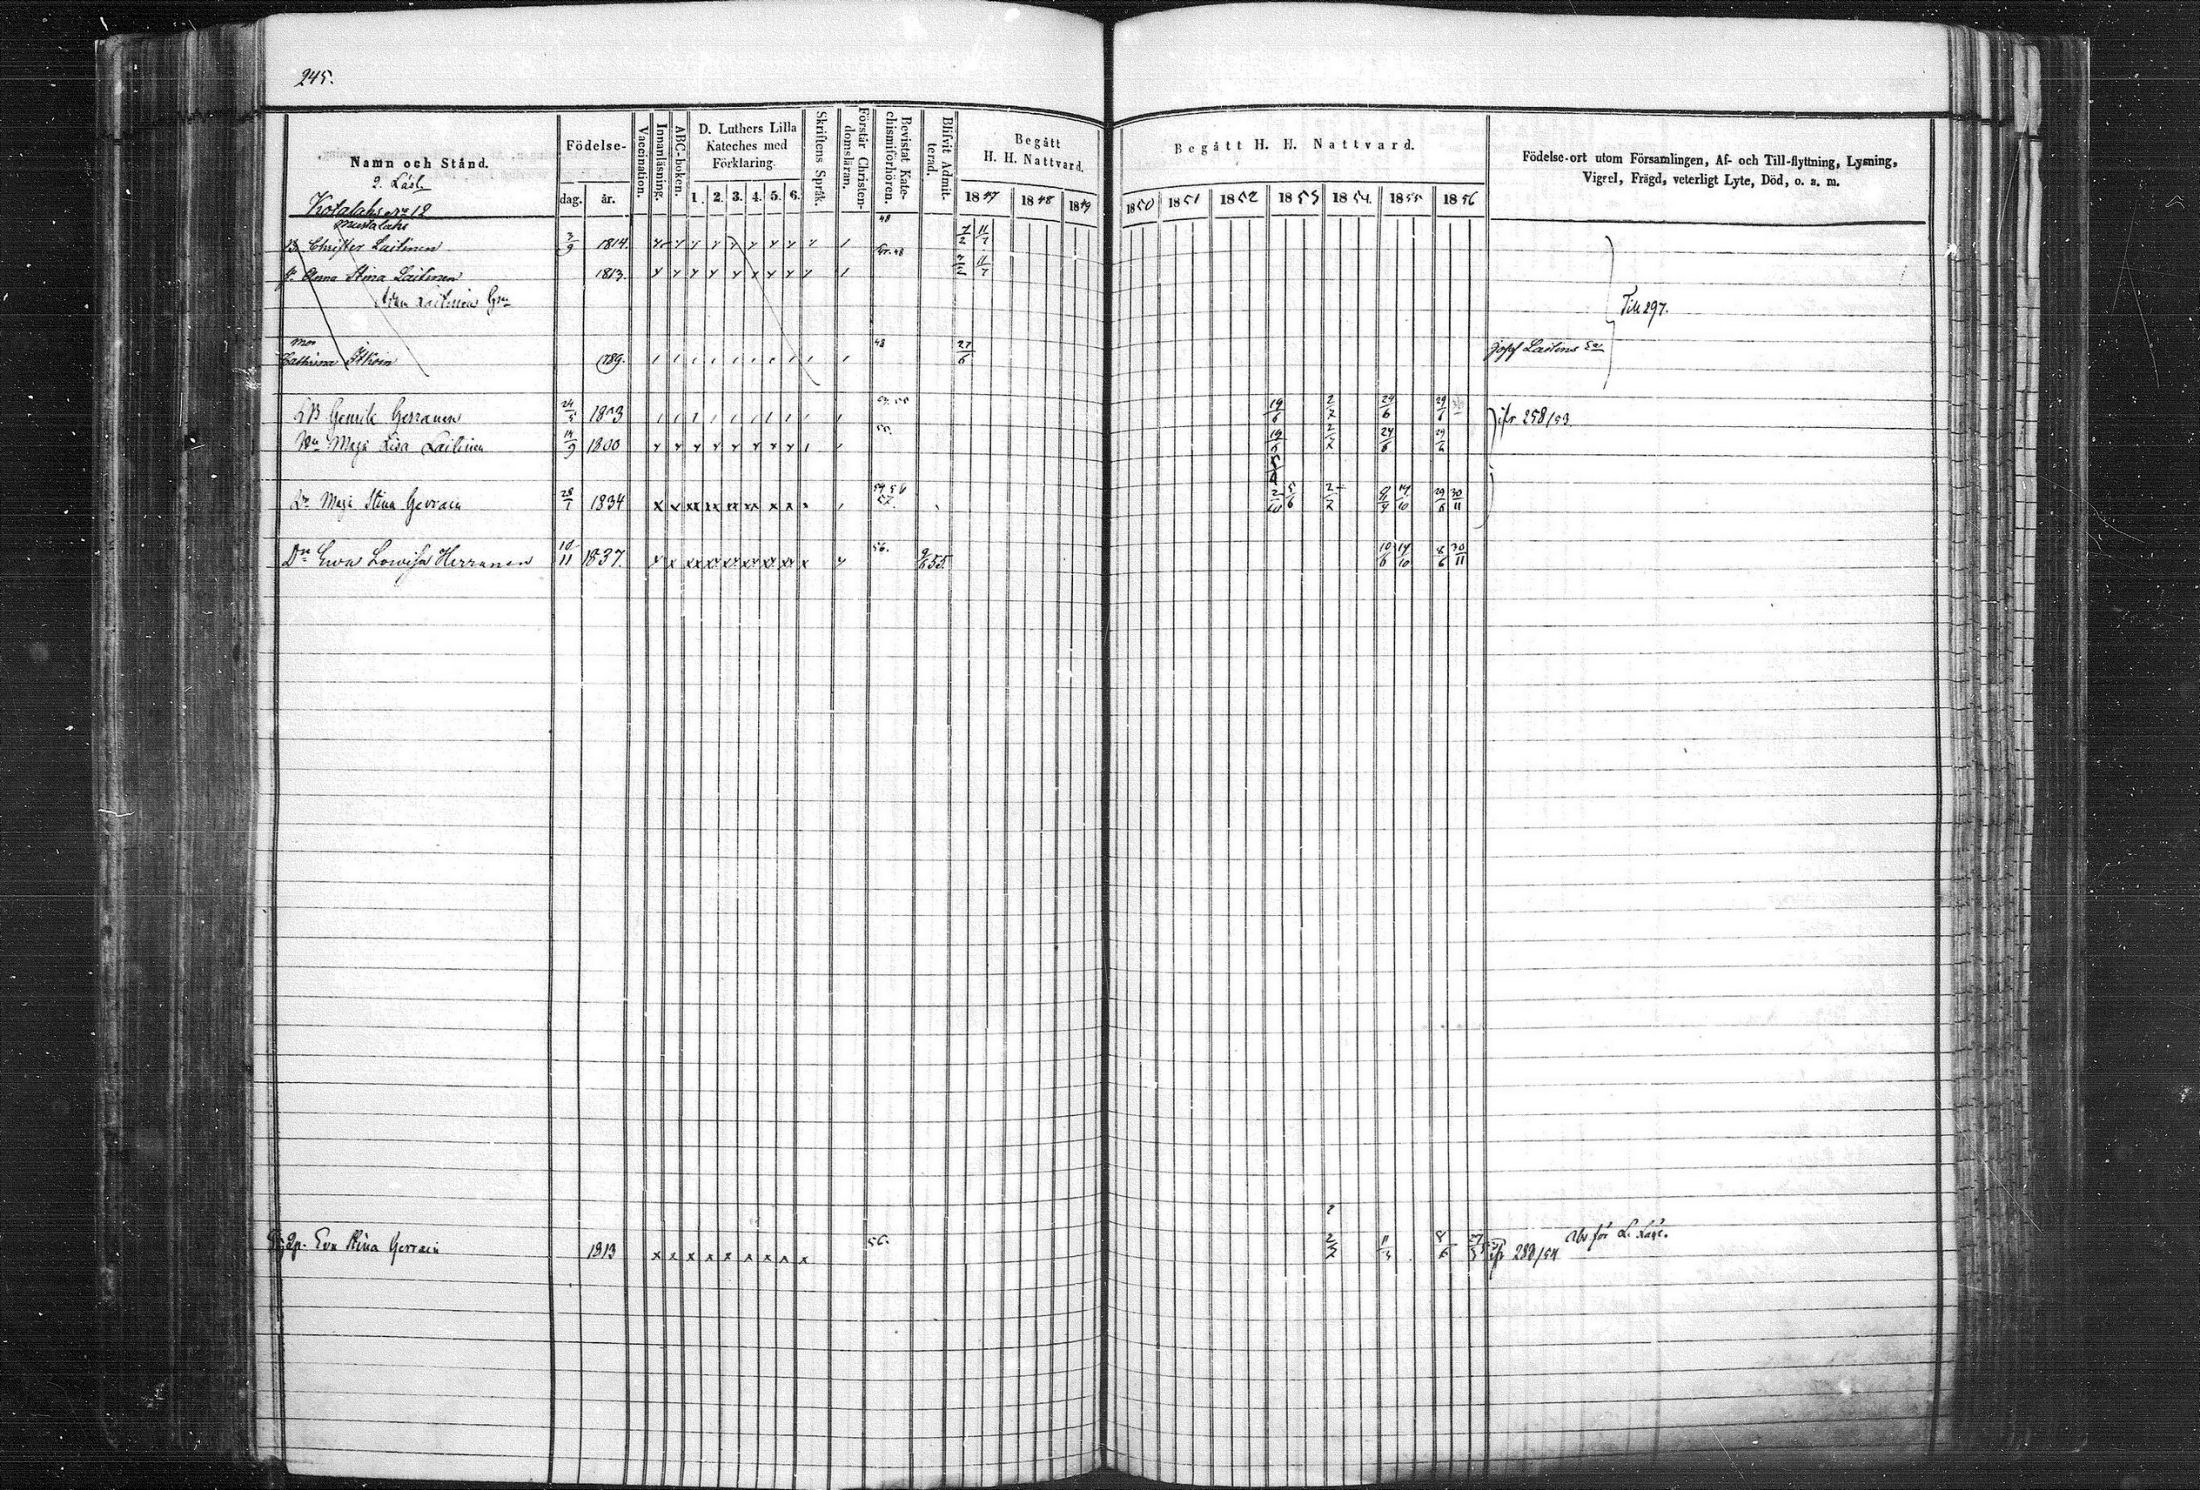 245.
Namn och Stånd.
Födelse-
dag. år.
Vaccination.
Innanläsning.
ABC-boken.
D. Luthers Lilla
Kateches med
Förklaring.
1. 2. 3. 4. 5. 6.
Skriftens Språk.
Förstår Christen-
domsläran.
Bevistat Kate-
chismiförhören.
Blifvit Admit-
terad.
Begått
H. H. Nattvard.
1847 1848 1849
Begått H. H. Nattvard.
1850 1851 1852 1853 1854. 1855 1856
Födelse-ort utom Församlingen, Af- och Till-flyttning, Lysning,
Vigsel, Frägd, veterligt Lyte, Död, o. s. m.
2. Läsl.
Kotalahti No 12
Mustalahi
B. Christer Laitinen 3/9 1814. 48 7/2 11/7
h. Anna Stina Laitinen 1813. 48 11/7
Laitinen
Till 297.
mor
Cathrina Itkoin 1789. 48 27/6
LB Henrik Herranen 24/5 1803 19/6 2/7 24/6 29/6 ifr 258/53.
Maja Lisa Laitinen 14/9 1800 55. 19/6 2/7 24/6 29/6
Dr Maja Stina Gerrain 28/7 1834 2/10 5/6 2/7 9/9 14/10 29/6 30/11
Dr Ewa Lowisa Herranen 10/11 1837. 56. 9/6 55. 10/6 14/10 8/6 30/11
Eva Stina Gerrain 1813 56. 2/7 8/6 ifr 288/54